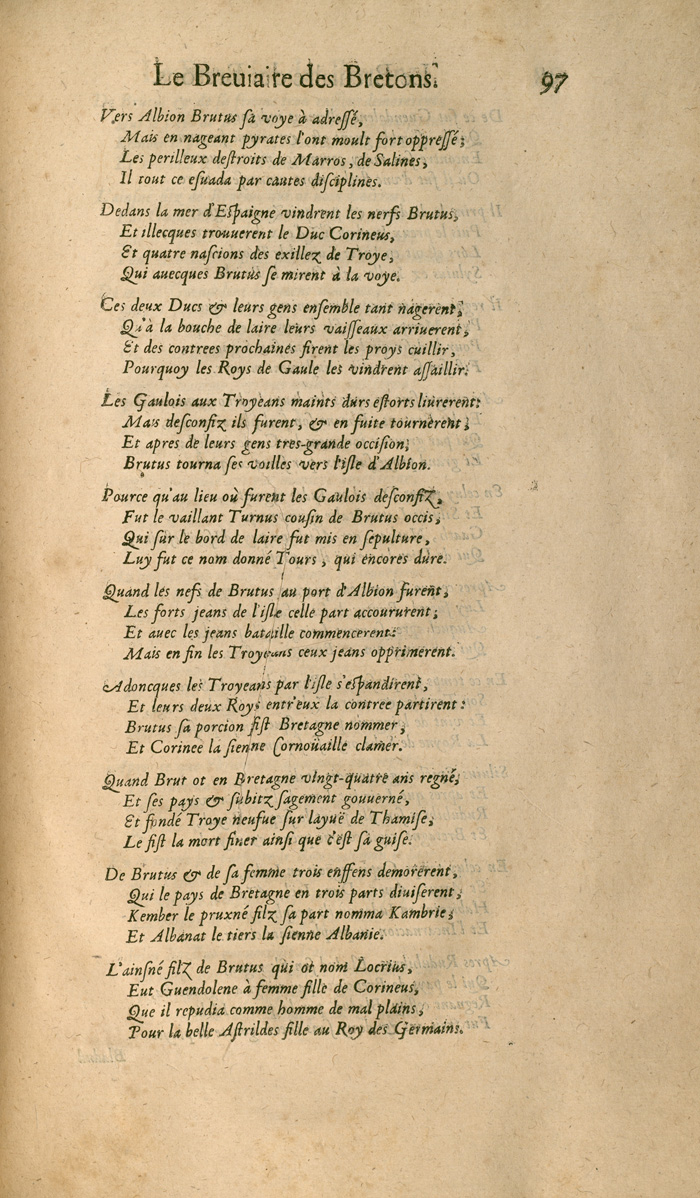 Le Breuiaire des Bretons. 97
Vers Albion Brutus sa voye à adressé,
Mais en nageant pyrates l'ont moult fort oppressé;
Les perilleux destroits de Marros, de Salines,
Il tout ce esuada par cautes disciplines.
Dedans la mer d'Espaigne vindrent les nerfs Brutus,
Et illecques trouuerent le Duc Corineus,
Et quatre nascions des exillez de Troye,
Qui auecques Brutus se mirent à la voye.
Ces deux Ducs & leurs gens ensemble tant nagerent,
Qu'à la bouche de laire leurs vaisseaux arriuerent,
Et des contrees prochaines firent les proys cuillir,
Pourquoy les Roys de Gaule les vindrent assaillir.
Les Gaulois aux Troyeans maints durs estorts liurerent:
Mais desconfiz ils furent, & en fuite tournerent;
Et apres de leurs gens tres-grande occision;
Brutus tourna ses voilles vers l'isle d'Albion.
Pource qu'au lieu où furent les Gaulois desconfiz,
Fut le vaillant Turnus cousin de Brutus occis,
Qui sur le bord de laire fut mis en sepulture,
Luy fut ce nom donné Tours, qui encores dure.
Quand les nefs de Brutus au port d'Albion furent,
Les forts jeans de l'isle celle part accoururent;
Et auec les jeans bataille commencerent:
Mais en fin les Troyeans ceux jeans opprimerent.
Adoncques les Troyeans par l'isle s'espandirent,
Et leurs deux Roys entr'eux la contree partirent:
Brutus sa porcion fist Bretagne nommer;
Et Corinee la sienne Cornoüaille clamer.
Quand Brut ot en Bretagne vingt-quatre ans regné;
Et ses pays & subitz sagement gouuerné,
Et fondé Troye neufue sur layuë de Thamise;
Le fist la mort finer ainsi que c'est sa guise.
De Brutus & de sa femme trois enffens demorerent,
Qui le pays de Bretagne en trois parts diuiserent;
Kember le pruxné filz sa part nomma Kambrie;
Et Albanat le tiers la sienne Albanie.
L'ainsné filz de Brutus qui ot nom Locrius,
Eut Guendolene à femme fille de Corineus,
Que il repudia comme homme de mal plains,
Pour la belle Astrildes fille au Roy des Germains.